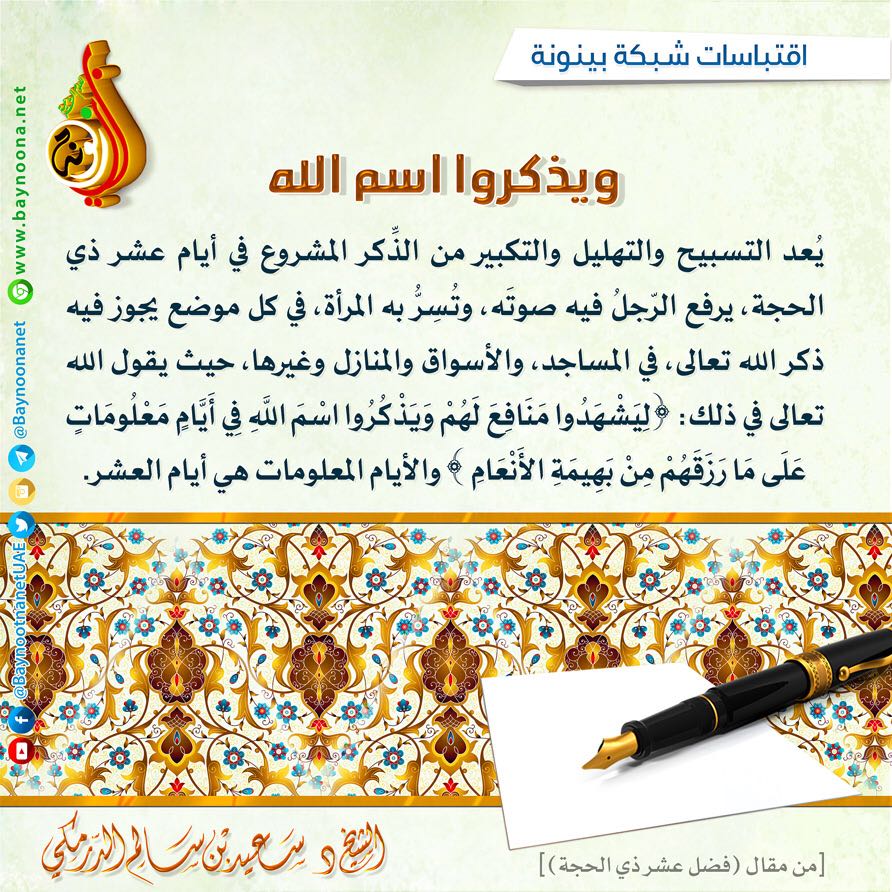 اقتباسات شبكة بينونة
ويذكروا اسم الله
يُعد التسبيح والتهليل والتكبير من الذِّكر المشروع في أيام عشر ذي
الحجة، يرفع الرّجلُ فيه صوتَه، وتُسِرُّ به المرأة، في كل موضع يجوز فيه
ذكر الله تعالى، في المساجد، والأسواق والمنازل وغيرها، حيث يقول الله
تعالى في ذلك: ﴿لِيَشْهَدُوا مَنَافِعَ لَهُمْ وَيَذْكُرُوا اسْمَ اللَّهِ فِي أَيَّامٍ مَعْلُومَاتٍ
عَلَى مَا رَزَقَهُمْ مِنْ بَهِيمَةِ الأَنْعَامِ﴾ والأيام المعلومات هي أيام العشر.
www.baynoona.net
@Baynoonanet
@BaynootnanetUAE
الشيخ د سعيد بن سالم الدرمكي
[من مقال (فضل عشر ذي الحجة)]